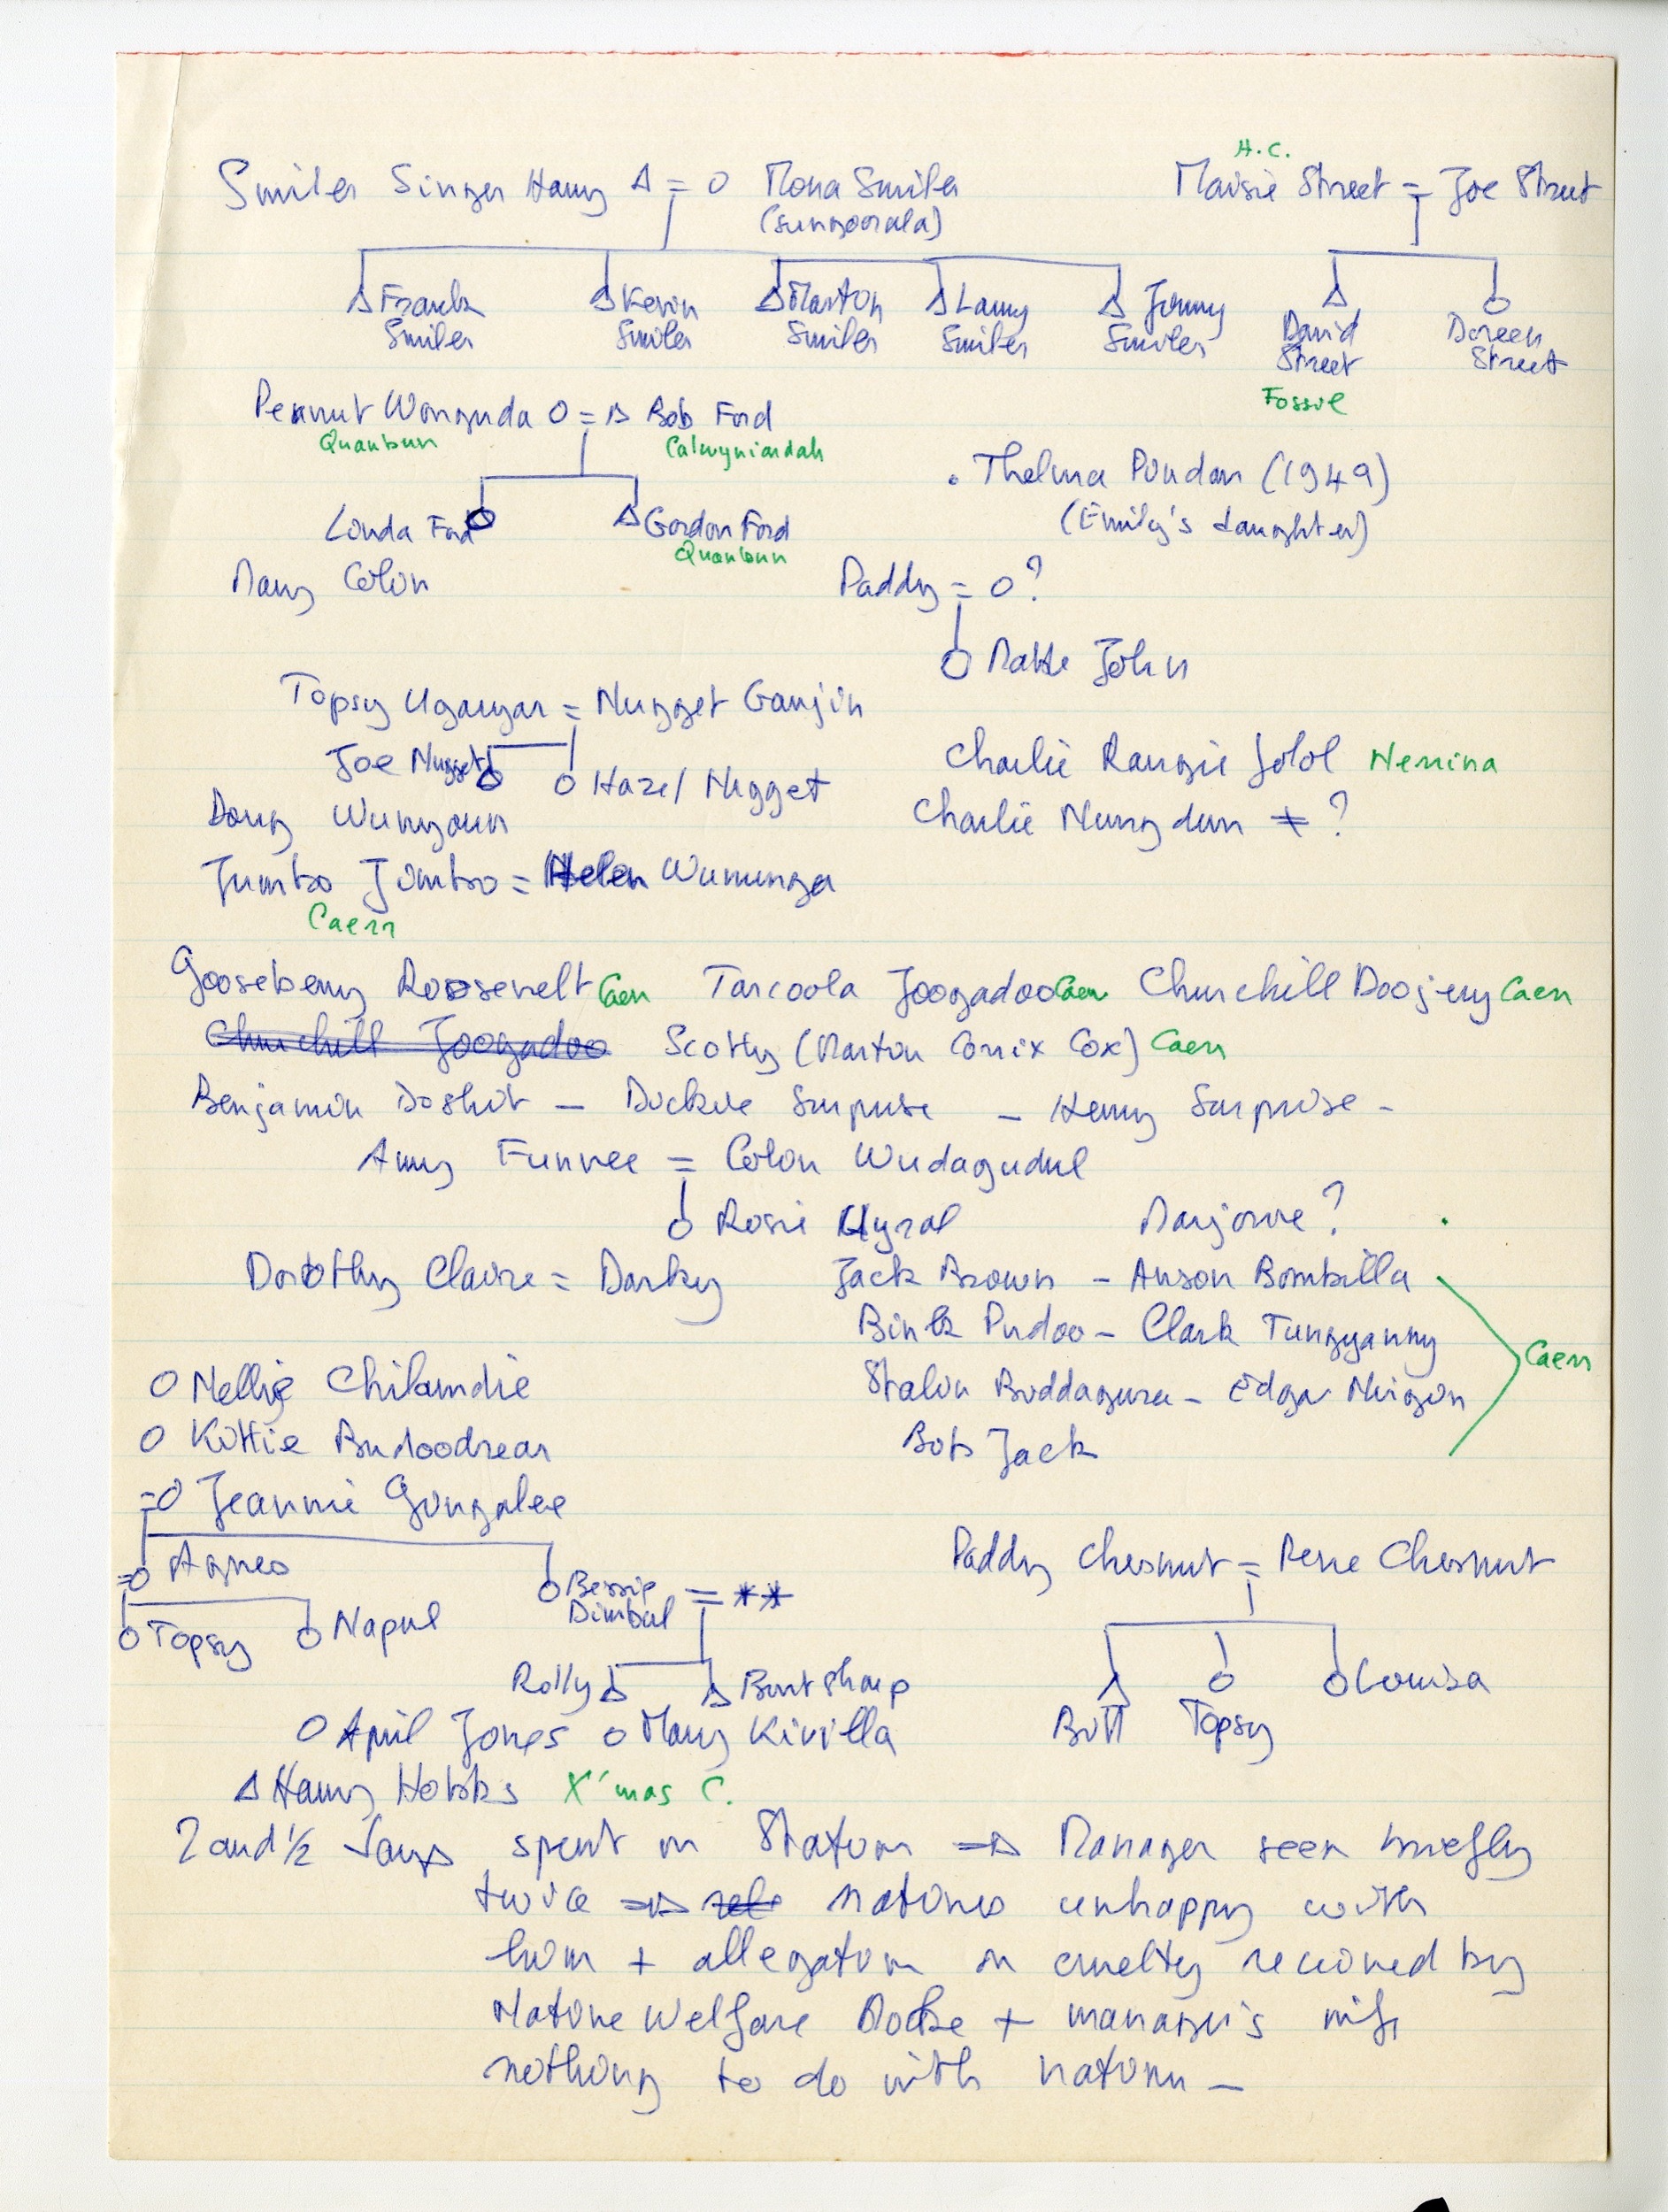 H.C.
Smiler Singer Harry Δ = O Mona Smiler Maisie Street = Joe Street
(Sungoorala)
Δ Frank Δ Kevin Δ Marton Δ Larry Δ Jimmy Δ O
Smiler Smiler Smiler Smiler Smiler David Doreen
Street Street
Fossil
Peanut Wonguda O = Δ Bob Ford
Quanbun Calwyniardah
. Thelma Pundan (1949)
Linda Ford O Δ Gordon Ford (Emily's daughter)
Quanbun
Mary Colin Paddy = O ?
O John
Topsy Uganyar = Nugget Ganjin
Joe Nugget Δ O Hazel Nugget Charlie Rangie Jolol Nerrina
Doug Wungoun Charlie Nungdun ≠ ?
Jumbo Jimbo = Helen Wununga
Caen
Gooseberry Roosevelt Caen Tarcoola Joogadoo Caen Churchill Doojery Caen
Churchill Joogadoo Scotty (Marton Comix Cox) Caen
Benjamin Doshit – Dickie Surprise – Henry Surprise –
Amy Funnee = Colin Wudagudul
O Rosie Uyral Marjorie ?
Dorothy Claire = Darky Jack Brown – Anson Bombilla
Bink Pudoo – Clark Tungyanny
Caen
O Nellie Chilamdie Stalin Buddagura – Edgar Nirgin
O Kittie Budoodrear Bob Jack
=O Jeannie Gungalee
=O Agnes O Bessie = ** Paddy Chesnut = Rene Chesnut
Dimbal
O Topsy O Napul
Rolly Δ Δ Burt Sharp Δ O O Louisa
Butt Topsy
O April Jones O Mary Kivilla
Δ Harry Hobbs X'mas C.
2 and 1/2 days spent in Station ⇒ Manager seen briefly
twice ⇒ natives unhappy with
him + allegation on cruelty received by
Native Welfare + manager's wife
nothing to do with natives –